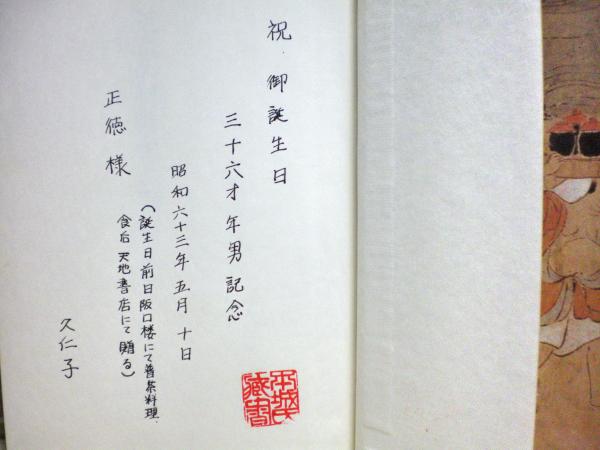 祝・御誕生日
三十六才年男記念
昭和六十三年五月十日
(誕生日前日阪口楼にて普茶料理・
食后天地書店にて贈る)
正徳様
久仁子
蔵書